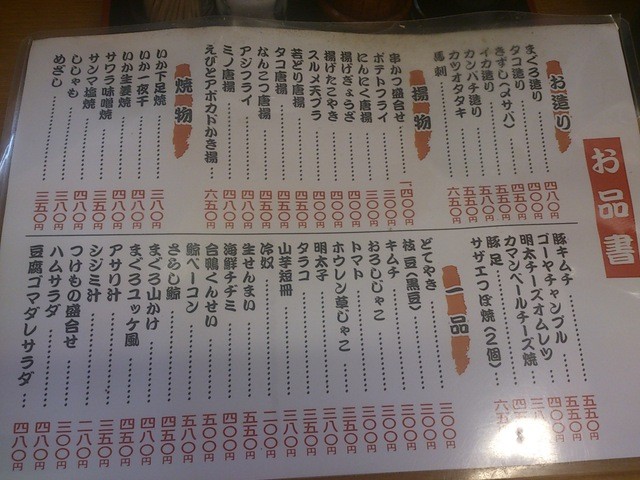 お品書
お造り
まぐろ造り 四八〇円
タコ造り 四五〇円
きずし(〆サバ) 五〇〇円
イカ造り
カンパチ造り 五八〇円
カツオタタキ 五五〇円
馬刺 六五〇円
揚物
串かつ盛合せ 一、四〇〇円
ポテトフライ 三〇〇円
にんにく唐揚 三〇〇円
揚げぎょうざ 四〇〇円
揚げたこやき 四〇〇円
スルメ天プラ 四〇〇円
若どり唐揚 四五〇円
タコ唐揚 四五〇円
なんこつ唐揚 四五〇円
アジフライ 四八〇円
ミノ唐揚 四八〇円
えびとアボカドかき揚 六五〇円
焼物
いか下足焼 三八〇円
いか一夜干 四八〇円
いか生姜焼 四八〇円
サワラ味噌焼 三五〇円
サンマ塩焼 四八〇円
ししゃも 三八〇円
めざし 三五〇円
豚キムチ 五五〇円
ゴーヤチャンプル 五五〇円
明太チーズオムレツ
カマンベールチーズ焼
豚足
サザエつぼ焼(2個)
一品
どてやき 三〇〇円
枝豆(黒豆) 三〇〇円
キムチ 三〇〇円
おろしじゃこ 三〇〇円
トマト 三〇〇円
ホウレン草じゃこ 三五〇円
明太子 三八〇円
タラコ 三五〇円
山芋短冊 三八〇円
冷奴 二〇〇円
生せんまい 五五〇円
海鮮チヂミ 四〇〇円
合鴨くんせい 五〇〇円
鯨ベーコン 六五〇円
さらし鯨 四五〇円
まぐろ山かけ 四八〇円
まぐろユッケ風 四五〇円
アサリ汁 三五〇円
シジミ汁 二八〇円
つけもの盛合せ 三〇〇円
ハムサラダ 四八〇円
豆腐ゴマダレサラダ 四八〇円